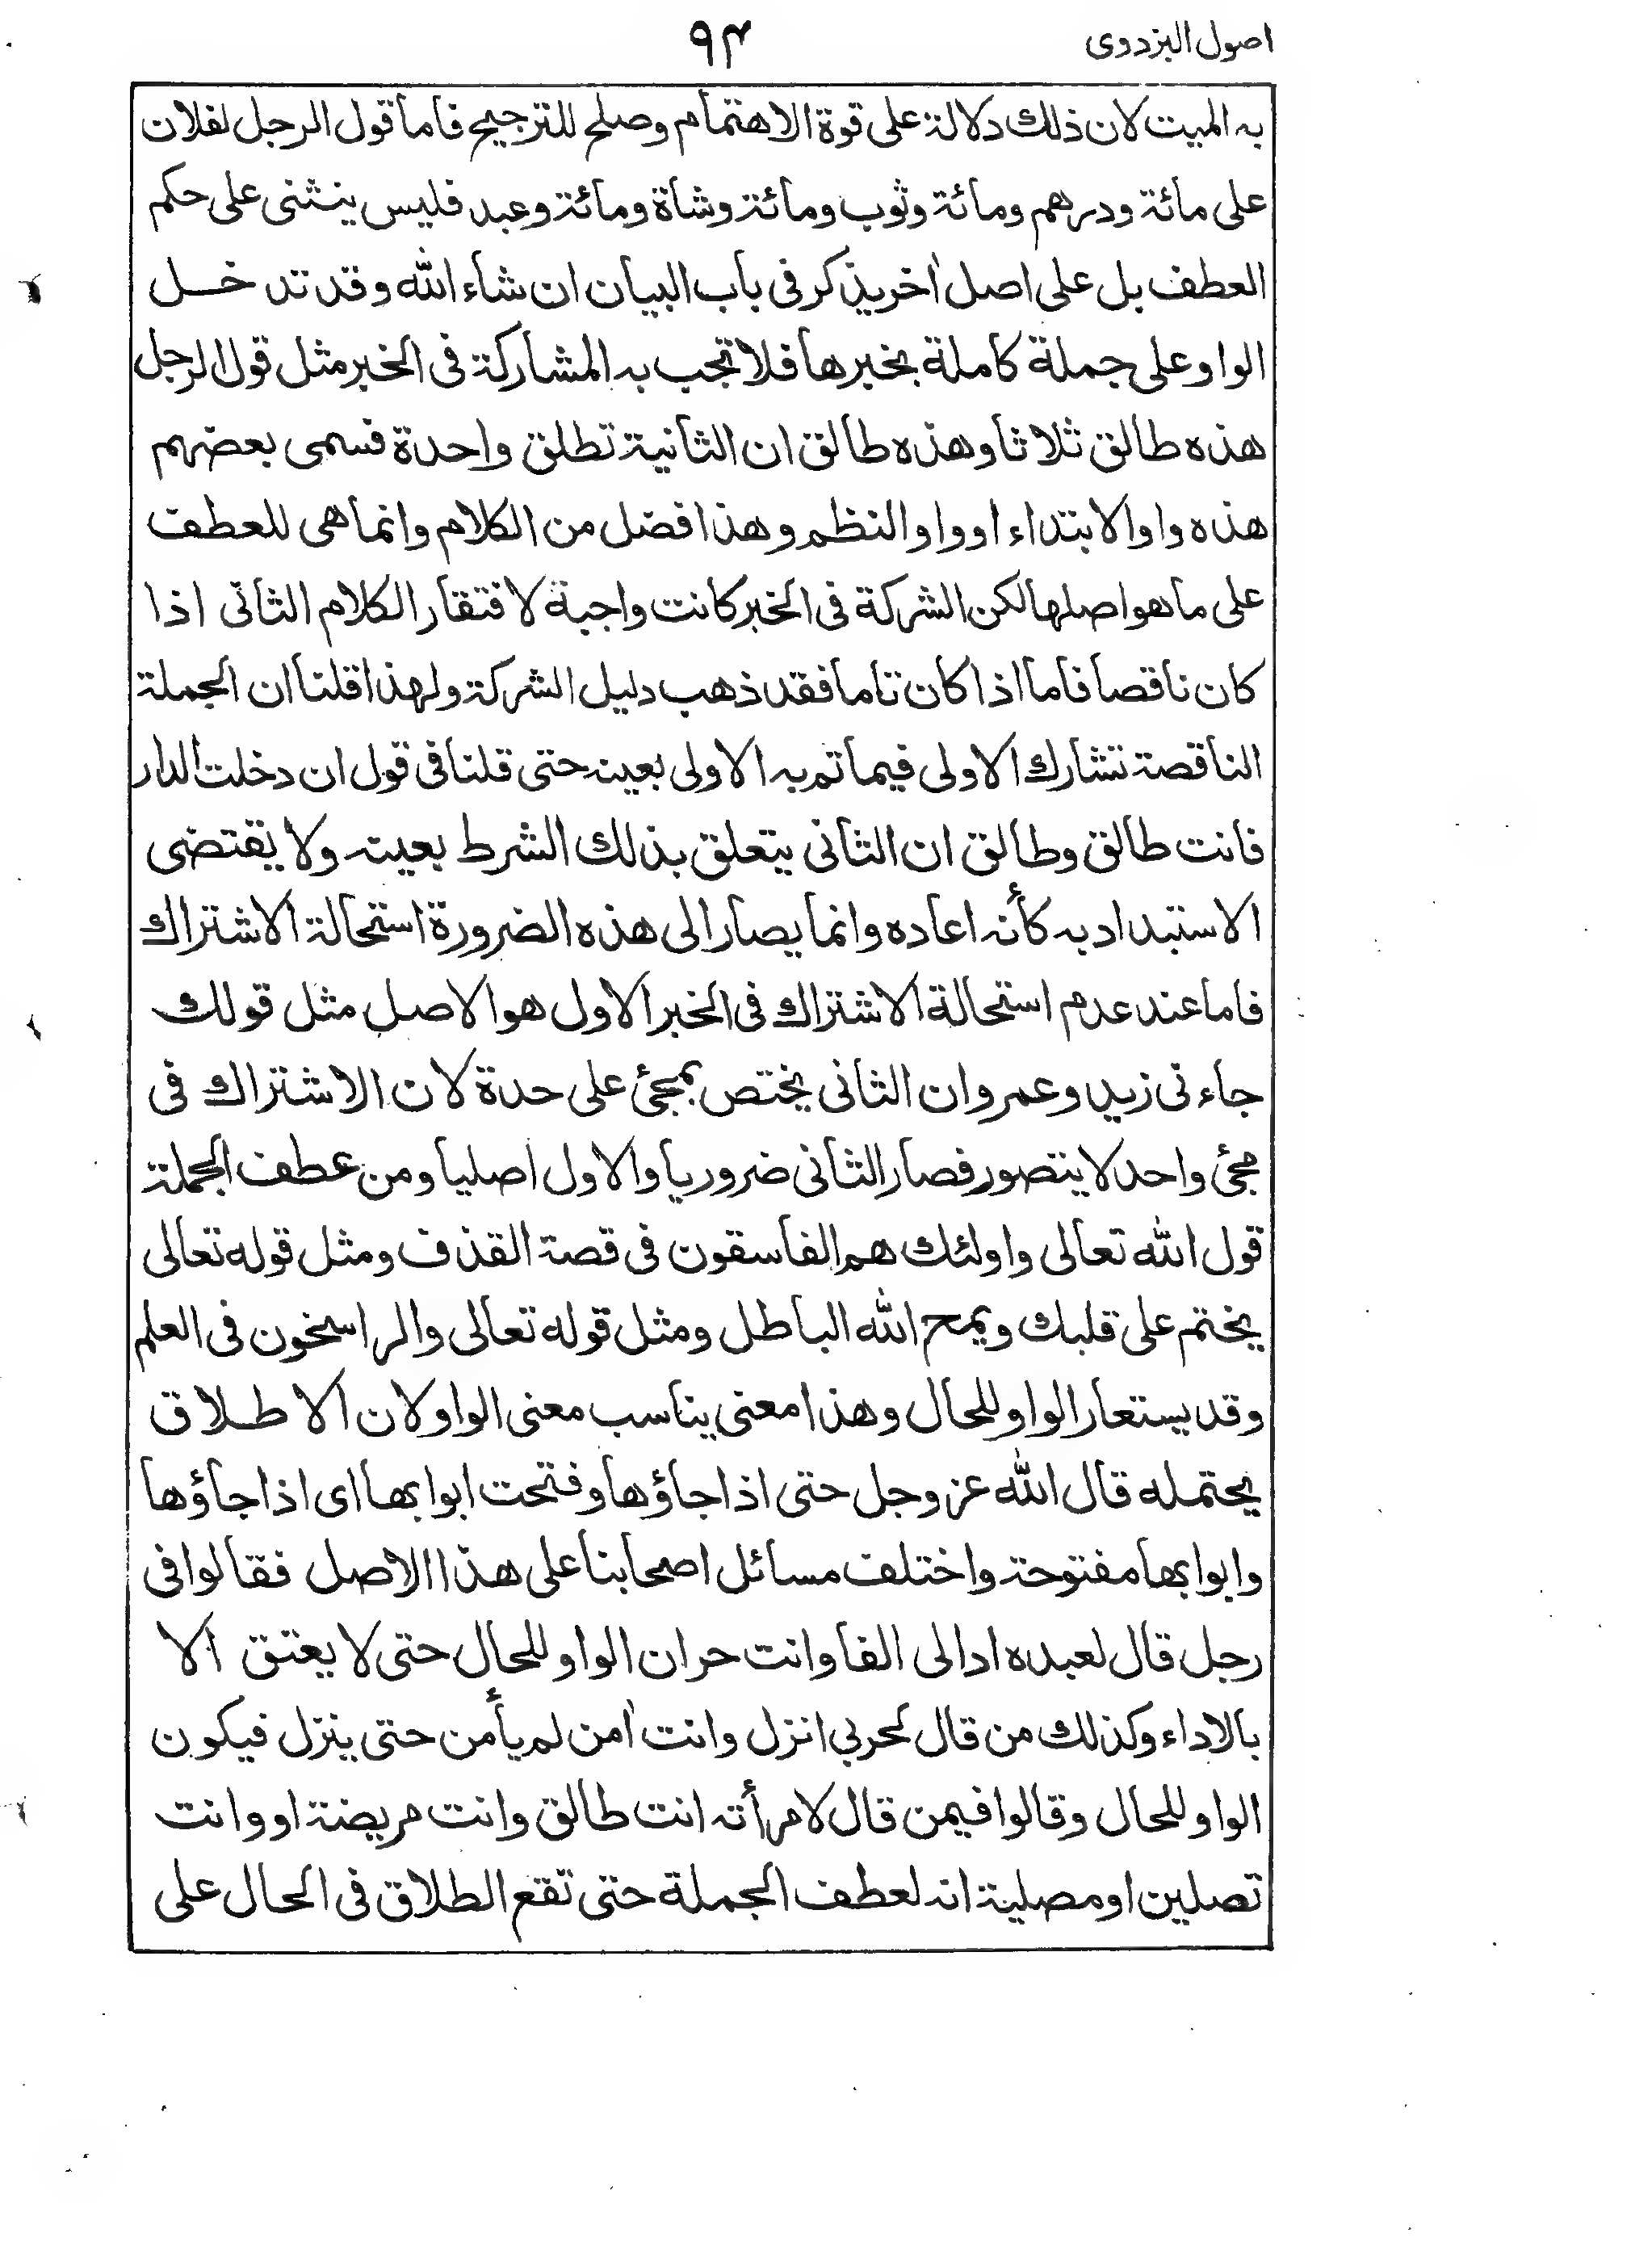 اصول البزدوى
٩٣
به الميت لان ذلك دلالة على قوة الاهتمام وصلح للترجيح فاما قول الرجل لفلان
على مائة ودرهم ومائة وثوب ومائة وشاة ومائة وعبد فليس ينثنى على حكم
العطف بل على اصل اٰخر يذكر فى باب البيان ان شاء الله وقد تدخل
الواو على جملة كاملة بخبرها فلا تجب به المشاركة فى الخبر مثل قول الرجل
هذه طالق ثلاثا وهذه طالق ان الثانية تطلق واحدة فسمى بعضهم
هذه واو الابتداء او واو النظم وهذا فضل من الكلام وانما هى للعطف
على ما هو اصلها لكن الشركة فى الخبر كانت واجبة لافتقار الكلام الثانى اذا
كان ناقصا فاما اذا كان تاما فقد ذهب دليل الشركة ولهذا قلنا ان الجملة
الناقصة تشارك الاولى فيما تم به الاولى بعينه حتى قلنا فى قول ان دخلت الدار
فانت طالق وطالق ان الثانى يتعلق بذلك الشرط بعينه ولا يقتضى
الاستبداد به كأنه اعاده وانما يصار الى هذه الضرورة استحالة الاشتراك
فاما عند عدم استحالة الاشتراك فى الخبر الاول هو الاصل مثل قولك
جاءنى زيد وعمرو ان الثانى يختص بمجئ على حدة لان الاشتراك فى
مجئ واحد لا يتصور فصار الثانى ضروريا والاول اصليا ومن عطف الجملة
قول الله تعالى واولئك هم الفاسقون فى قصة القذف ومثل قوله تعالى
يختم على قلبك ويمح الله الباطل ومثل قوله تعالى والراسخون فى العلم
وقد يستعار الواو للحال وهذا معنى يناسب معنى الواو لان الاطلاق
يحتمله قال الله عز وجل حتى اذا جاؤها وفتحت ابوابها اى اذا جاؤها
وابوابها مفتوحة واختلف مسائل اصحابنا على هذا الاصل فقالوا فى
رجل قال لعبده اد الى الفا وانت حر ان الواو للحال حتى لا يعتق الا
بالاداء وكذلك من قال لحربي انزل وانت اٰمن لم يأمن حتى ينزل فيكون
الواو للحال وقالوا فيمن قال لامرأته انت طالق وانت مريضة او وانت
تصلين او مصلية انه لعطف الجملة حتى تقع الطلاق فى الحال على